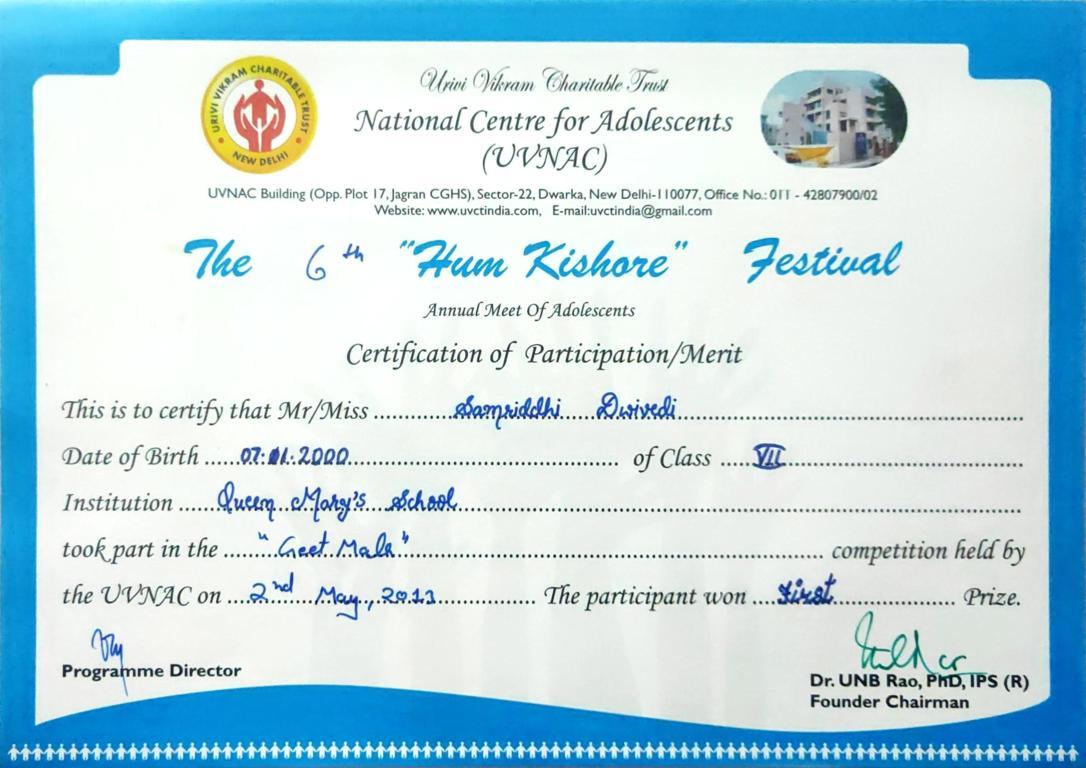 URIVI VIKRAM CHARITABLE TRUST
NEW DELHI
Urivi Vikram Charitable Trust
National Centre for Adolescents
(UVNAC)
UVNAC Building (Opp. Plot 17, Jagran CGHS), Sector-22, Dwarka, New Delhi-110077, Office No.: 011 - 42807900/02
Website: www.uvctindia.com, E-mail:uvctindia@gmail.com
The 6th "Hum Kishore" Festival
Annual Meet Of Adolescents
Certification of Participation/Merit
This is to certify that Mr/Miss Samriddhi Dwivedi
Date of Birth 07.01.2000 of Class VII
Institution Queen Mary's School
took part in the "Geet Mala" competition held by
the UVNAC on 2nd May, 2013 The participant won First Prize.
Programme Director
Dr. UNB Rao, PhD, IPS (R)
Founder Chairman